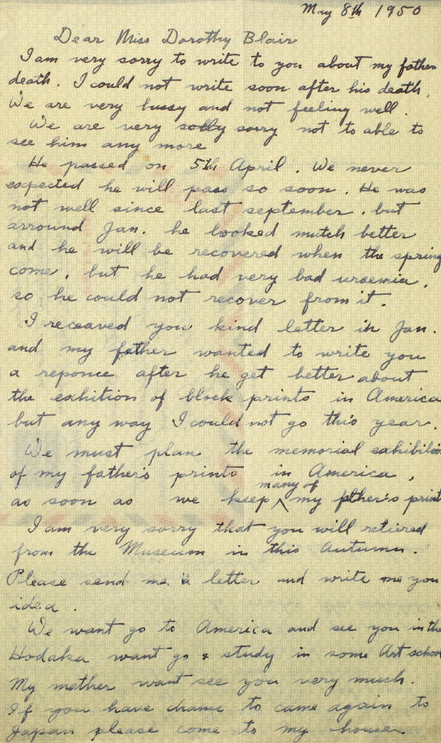 May 8th 1950
Dear Miss Dorothy Blair
I am very sorry to write to you about my father
death. I could not write soon after his death.
We are very bussy and not feeling well.
We are very solly sorry not to able to
see him any more
He passed on 5th April. We never
expected he will pass so soon. He was
not well since last september. but
arround Jan. he looked mutch better
and he will be recovered when the spring
come. but he had very bad uraemia.
so he could not recover from it.
I receaved you kind letter in Jan.
and my father wanted to write you
a reponce after he get better about
the exhition of block prints in America
but any way I could not go this year.
We must plan the memorial exhibition
of my father's prints in America,
as soon as we keep many of my father's print
I am very sorry that you will retiered
from the Museum in this Autumn.
Please send me a letter and write me you
idea.
We want go to America and see you in the
Hodaka want go & study in some Art school
My mother want see you very much.
If you have chance to came again to
Japan please come to my house